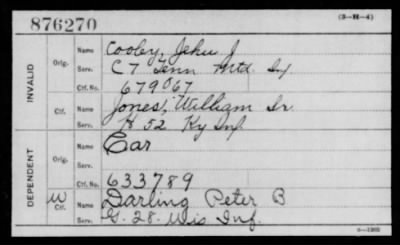 876270
(3-H-4)
INVALID
Orig.
Name Cooley, Jehu J
Serv. C 7 Tenn Mtd. Inf
Ctf. No. 679067
Ctf.
Name Jones, William Sr.
Serv. H 52 Ky Inf.
DEPENDENT
Orig.
Name Ear
Serv.
Ctf. No. 633789
W Ctf.
Name Darling Peter B
Serv. G. 28. Wis Inf.